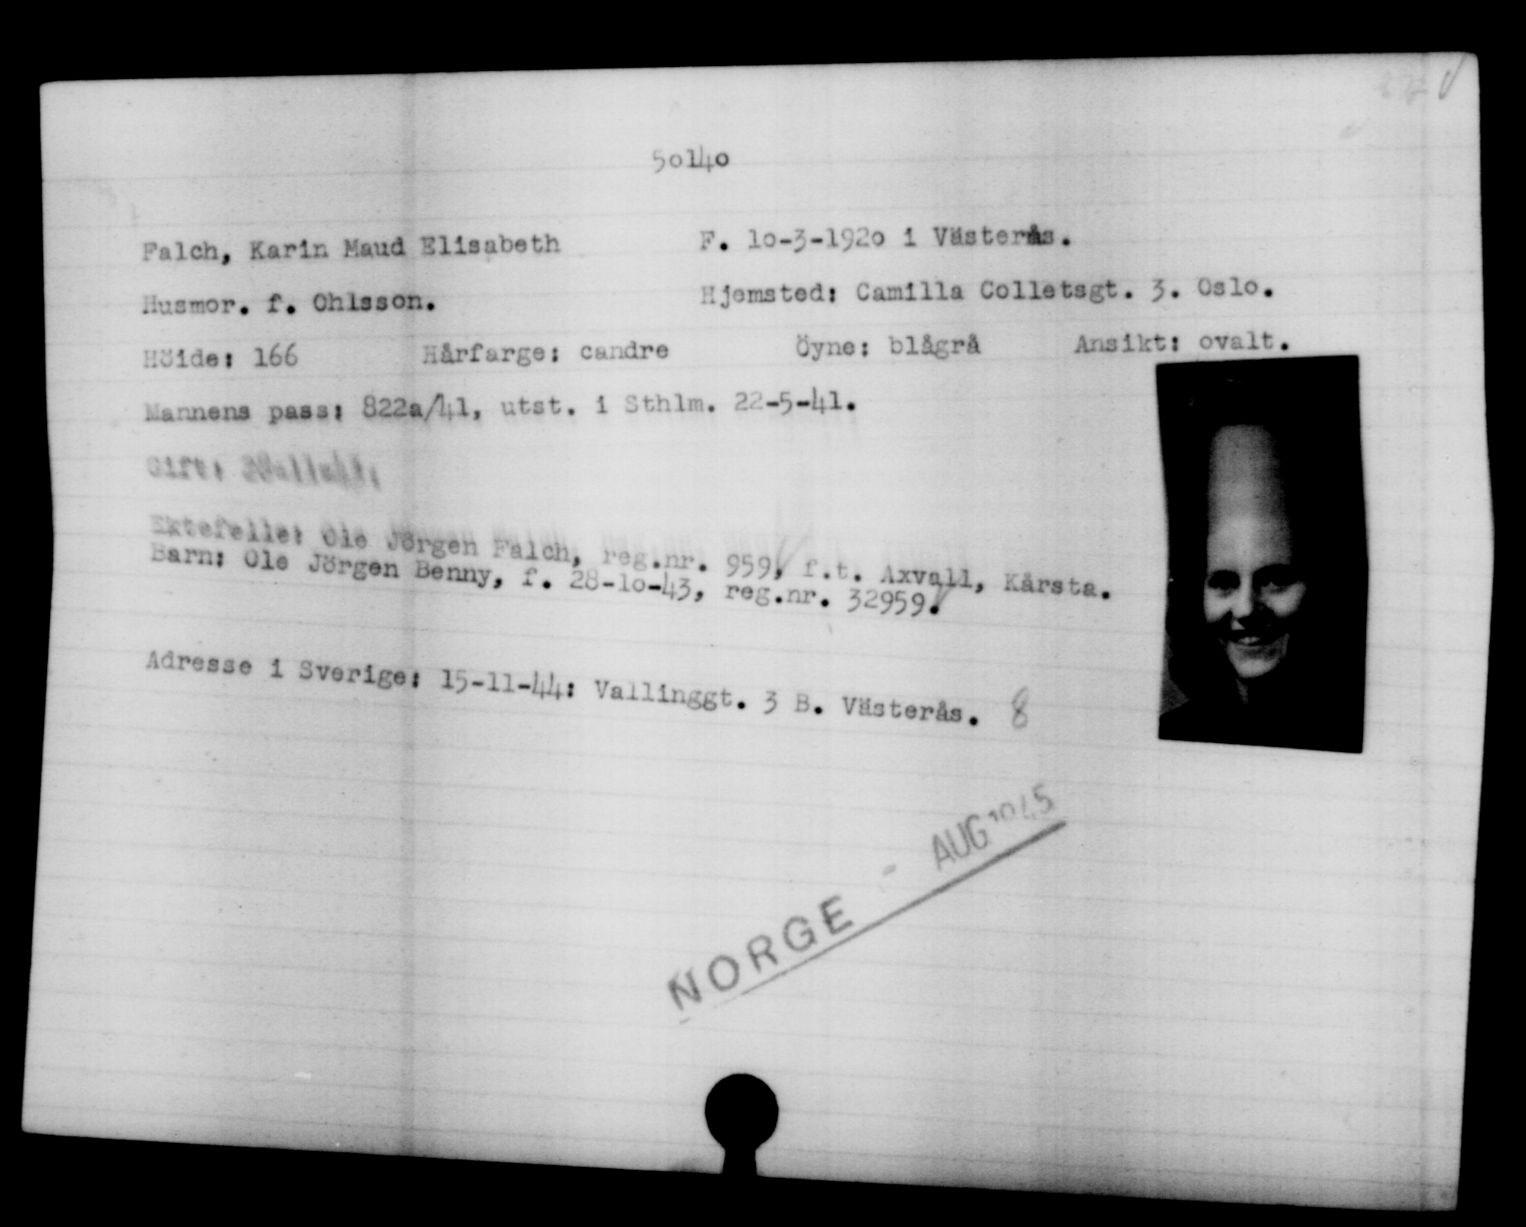 50140
Falch, Karin Maud Elisabeth F. 10-3-1920 i Västerås.
Husmor. f. Ohlsson. Hjemsted: Camilla Colletsgt. 3. Oslo.
Höide: 166 Hårfarge: candre Öyne: blågrå Ansikt: ovalt.
Mannens pass: 822a/41, utst. i Sthlm. 22-5-41.
Gift:
Ektefelle: Ole Jörgen Falch, reg.nr. 959, f.t. Axvall, Kårsta.
Barn: Ole Jörgen Benny, f. 28-10-43, reg.nr. 32959.
Adresse i Sverige: 15-11-44: Vallinggt. 3 B. Västerås. 8
NORGE - AUG 1945